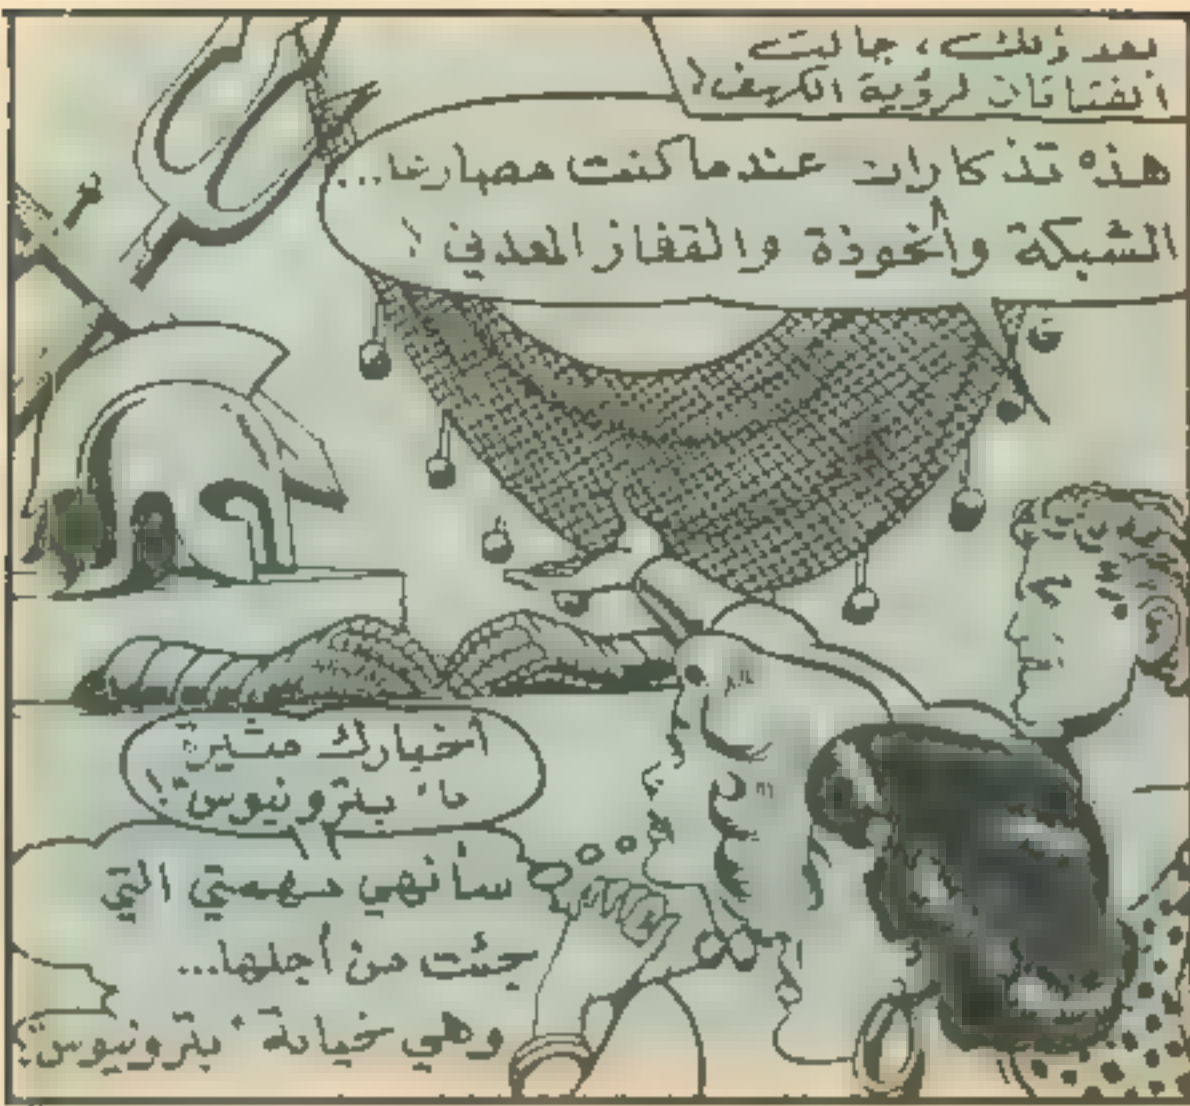 بعد ذلك، جالت
الفتاتان لرؤية الكهف!
هذه تذكارات عندما كنت مصارعا...
الشبكة والخوذة والقفاز المعدني!
أخبارك مثيرة
يا "بترونيوس"!
سأنهي مهمتي التي
جئت من أجلها...
وهي خيانة "بترونيوس"!